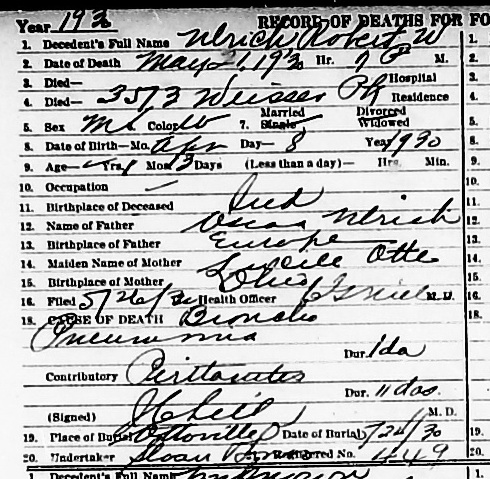 Year 193 RECORD OF DEATHS FOR FO
1. Decedent's Full Name Ulrich, Robert W 1.
2. Date of Death May 21, 193 Hr. 7 P M. 2.
3. Died— Hospital 3.
4. Died— 3573 Weisser Pk Residence 4.
5. Sex M 6. Color W 7. Married Single Divorced Widowed 5.
8. Date of Birth—Mo. Apr Day— 8 Year 1930 8.
9. Age— Yrs. 1 Mos. 13 Days (Less than a day)— Hrs. Min. 9.
10. Occupation — 10.
11. Birthplace of Deceased Ind 11.
12. Name of Father Oscar Ulrich 12.
13. Birthplace of Father Europe 13.
14. Maiden Name of Mother Lucile Otte 14.
15. Birthplace of Mother Ohio 15.
16. Filed 5/26/30 Health Officer M. D. 16.
18. CAUSE OF DEATH Broncho 18.
Pneumonia
Dur. 1 da
Contributory
Dur. 11 das
(Signed) M. D.
19. Place of Burial Ottoville O Date of Burial 5/24/30 19.
20. Undertaker Sloan Registered No. 449 20.
1. Decedent's Full Name Unknown 1.